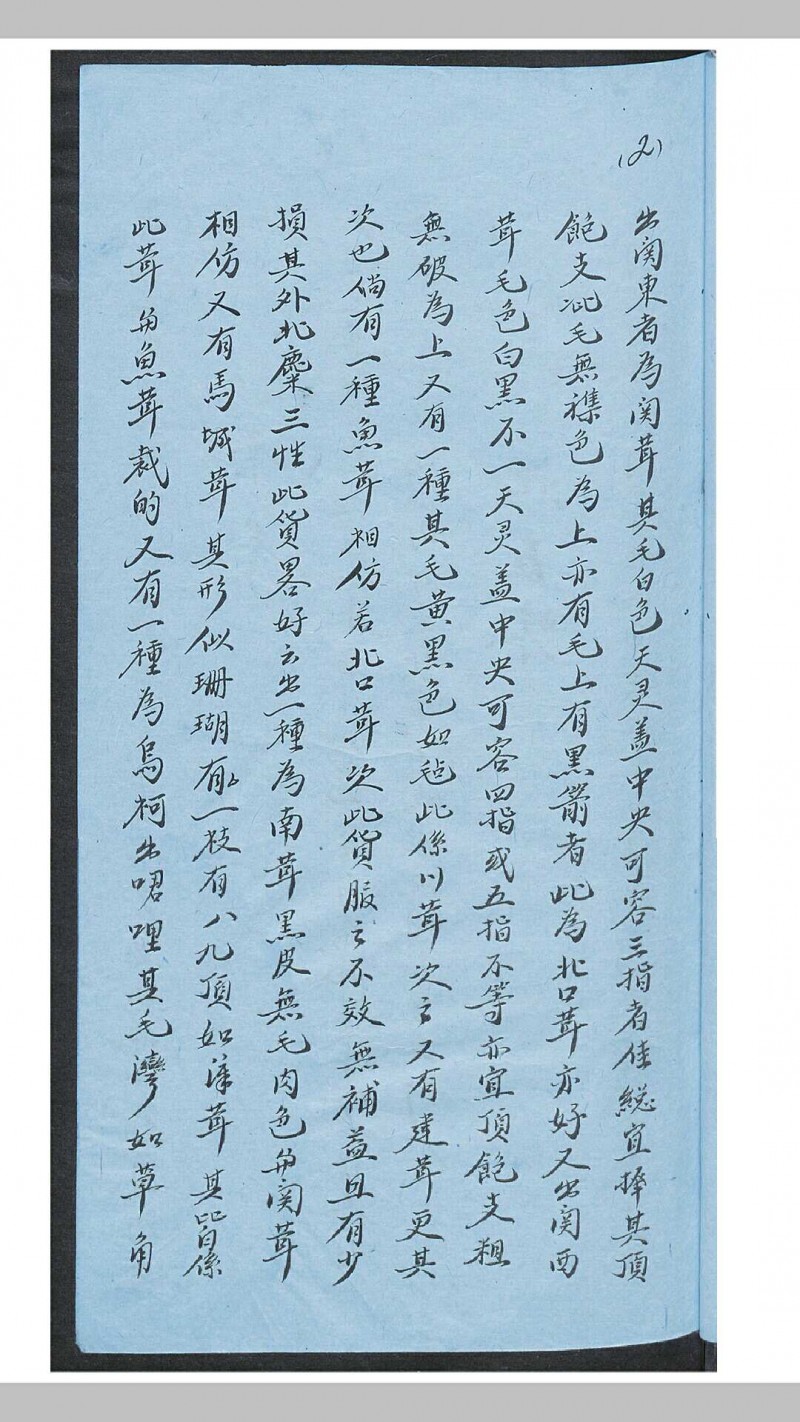 (2)
出関東者為関茸其毛白色天灵盖中央可容三指者佳總宜擇其頂
飽支泚毛無襍色為上亦有毛上有黒箭者此為北口茸亦好又出関西
茸毛色白黒不一天灵盖中央可容四指或五指不等亦宜頂飽支粗
無破為上又有一種其毛黄黒色如毡此係川茸次之又有建茸更其
次也倘有一種魚茸相仿若北口茸次此貨服之不效無補益且有少
損其外北麋三性此貨畧好云出一種為南茸黒皮無毛肉色与関茸
相仿又有馬城茸其形似珊瑚有一枝有八九頂如茸其皆係
此茸与魚茸裁的又有一種為烏柯出咭哩其毛灣如草角